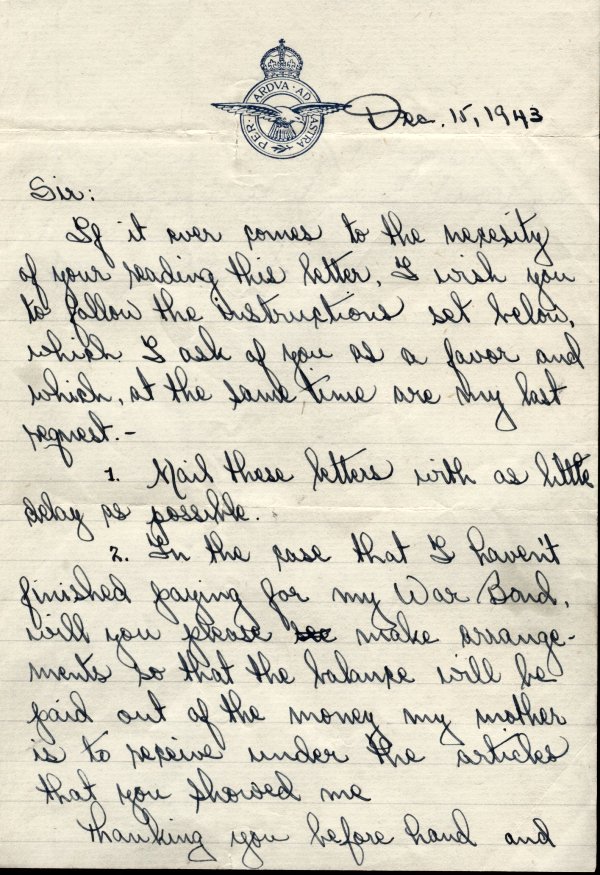 PER · ARDVA · AD ASTRA
Dec. 15, 1943
Sir:
If it ever comes to the necesity
of your reading this letter, I wish you
to follow the instructions set below,
which I ask of you as a favor and
which, at the same time are my last
request.-
1. Mail these letters with as little
delay as possible.
2. In the case that I haven't
finished paying for my War Bond,
will you please make arrange-
ments so that the balance will be
paid out of the money my mother
is to receive under the articles
that you showed me
Thanking you before hand and